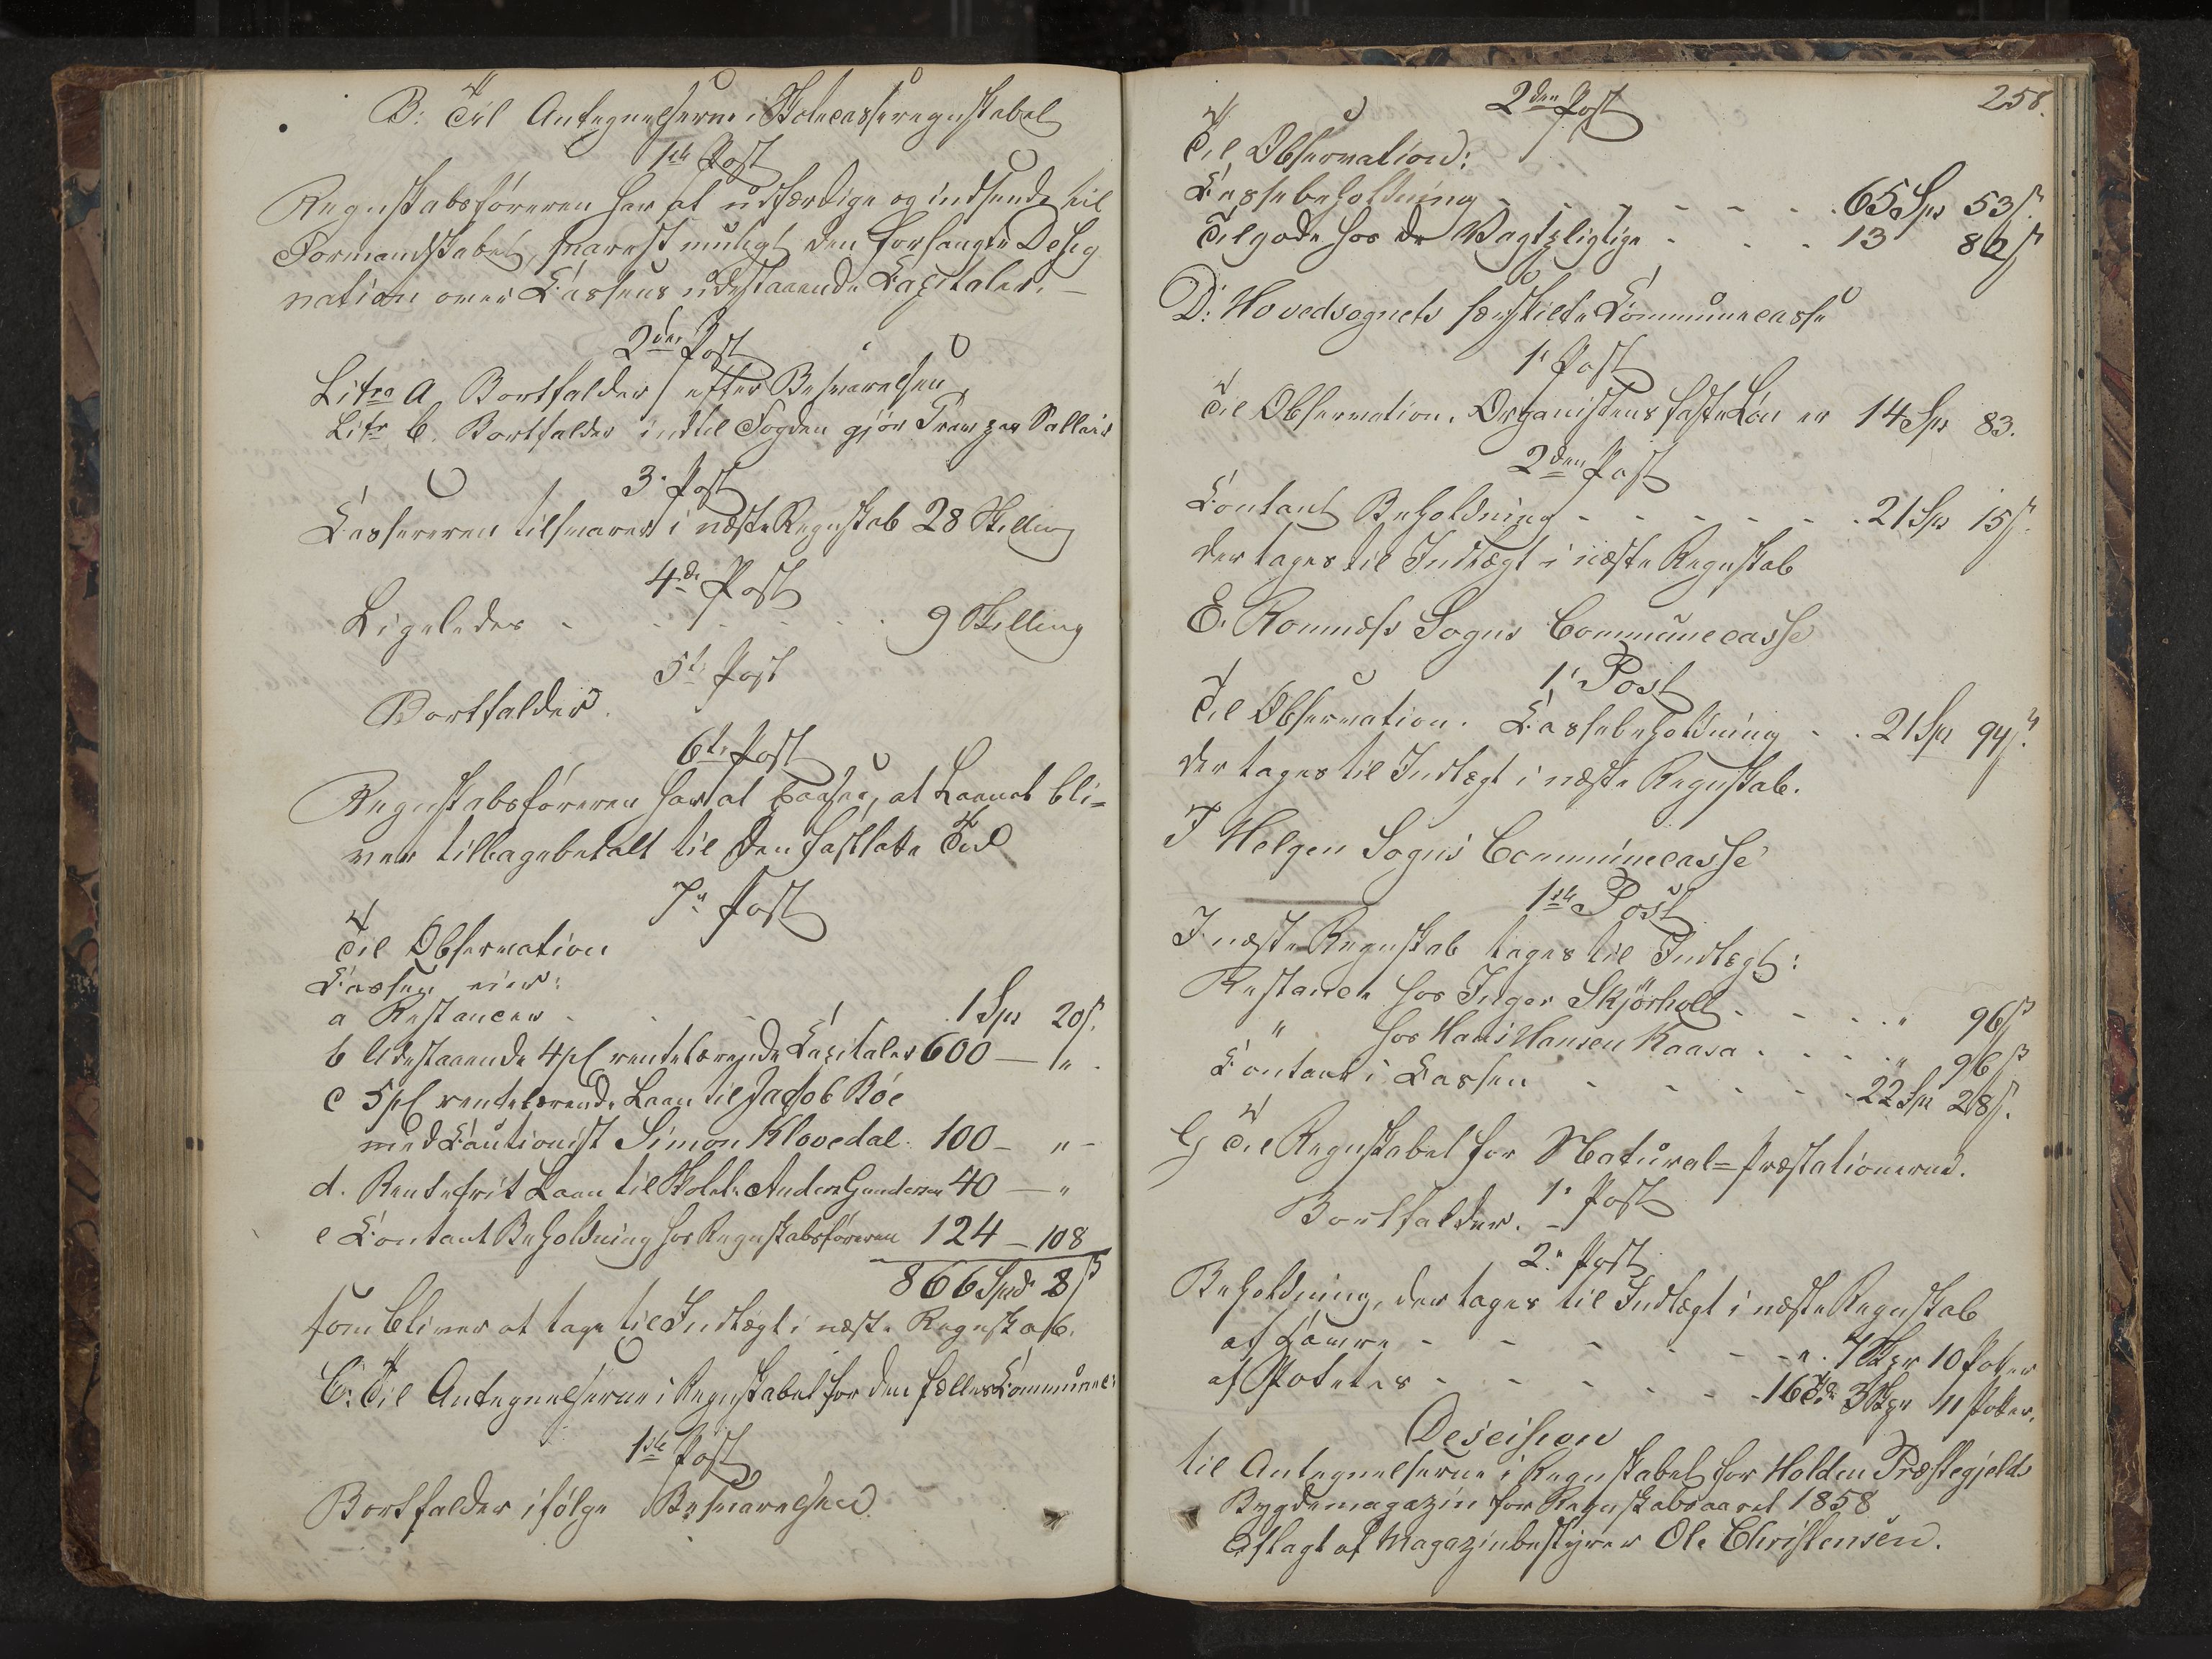 B: Til Antegnelserne i Skolecasseregnskabet
1ste Post
Regnskabsføreren har at udfærdige og indsende til
Formandskabet, snarest muligt den forlangte Desig
nation over Cassens udestaaende Capitaler. —
2den Post
Litra a Bortfalder efter Besvarelsen
Litr b. Bortfalder indtil Fogden gjør
3. Post
Cassereren tilsvarer i næste Regnskab 28 Skilling
4de Post
Ligeledes - - - - - - 9 Skilling
5te Post
Bortfalder.
6te Post
Regnskabsføreren har at paasee, at Laanet bli=
ver tilbagebetalt til den fastsatte Tid
7e Post
Til Observation
Cassen eier:
a Restancer - - - - 1 Spd 20 s.
b Udestaaende 4 pCt rentebærende Capitaler 600 — "
c 5 pCt rentebærende Laan til Jacob Bøe
med Cautionist Simon Klovedal. 100 — " -
d. Rentefrit Laan til Skolel. Anders Gundersen 40 — "
e Contant Beholdning hos Regnskabsføreren 124 — 108
866 Spd 8 s
som bliver at tage til Indtægt i næste Regnskab.
C. Til Antegnelserne i Regnskabet for den fælles Communec:
1ste Post
Bortfalder ifølge Besvarelsen
258.
2den Post
Til Observation:
Cassebeholdning - - - - - - 65 Spd 53 s.
Tilgode hos de Vagtpligtige - - - 13 82 s
D: Hovedsognets særskilte Communecasse
1' Post
Til Observation. Organistens faste Løn er 14 Spd 83.
2den Post
Contant Beholdning - - - - - - 21 Spd 15 s.
der tages til Indtægt i næste Regnskab
E. Romnæs Sogns Communecasse
1' Post
Til Observation. Cassebeholdning - - 21 Spd 94 s.
der tages til Indtægt i næste Regnskab.
F Helgen Sogns Communecasse
1ste Post
I næste Regnskab tages til Indtægt:
Restance hos Inger Skjørholt - - - - " 96 s
" hos Hans Hansen Kaasa - - - - " 96 s
Contant i Cassen - - - - - 22 Spd 28 s.
G Til Regnskabet for Natural=Præstationerne.
1' Post
Bortfalder. -
2' Post
Beholdning, der tages til Indtægt i næste Regnskab
af - - - - - - - " . 7 Skpr 10 Potter
af Poteter - - - - - - 16 Td 3 Skpr 11 Potter.
Descision
til Antegnelserne i Regnskabet for Holden Præstegjelds
Bygdemagazin for Regnskabsaaret 1858
Aflagt af Magazinbestyrer Ole Christensen.